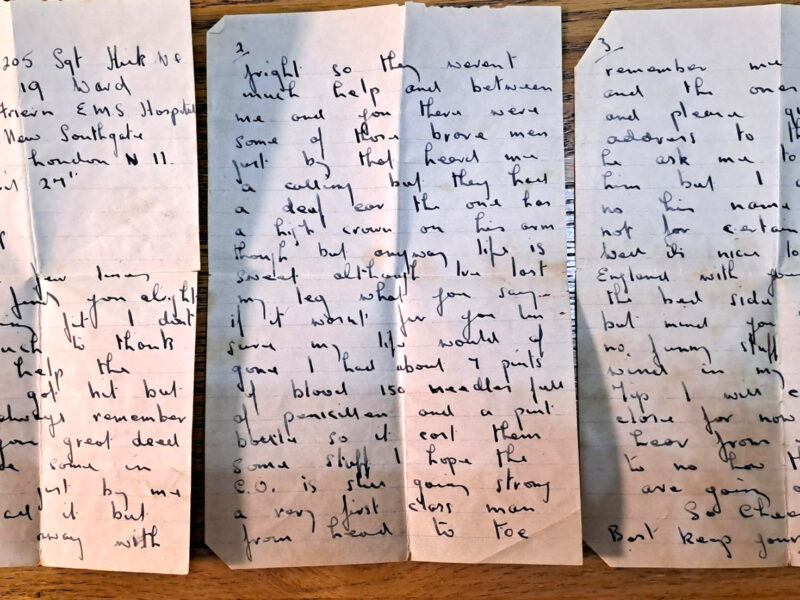 205 Sgt Hirk W C
19 Ward
Friern E.M.S Hospital
New Southgate
London N 11.
27"
few lines
find you alright
fit I dont
much to thank
help the
got hit but
always remember
you great deed
some in
just by me
it but
away with
2
fright so they werent
much help and between
me and you there were
some of those brove men
just by that heard me
a calling but they had
a deaf ear the one has
a high crown on his arm
though but anyway life is
sweat although Ive lost
my leg what you say
if it wasnt for you Im
sure my life would of
gone I had about 7 pints
of blood 150 needles full
of penicillen and a pint
bottle so it cost them
some stuff I hope the
C.O. is still going strong
a very first class man
from head to toe
3
remember me
and the ones
and please
address to th
he ask me to
him but I
no his name
not for certain
Well its nice to
England with you
the bed side
but mind you
no funny stuff
wind in my
Tip I will c
close for now
hear from
to no how th
are going
So Chee
Best keep your